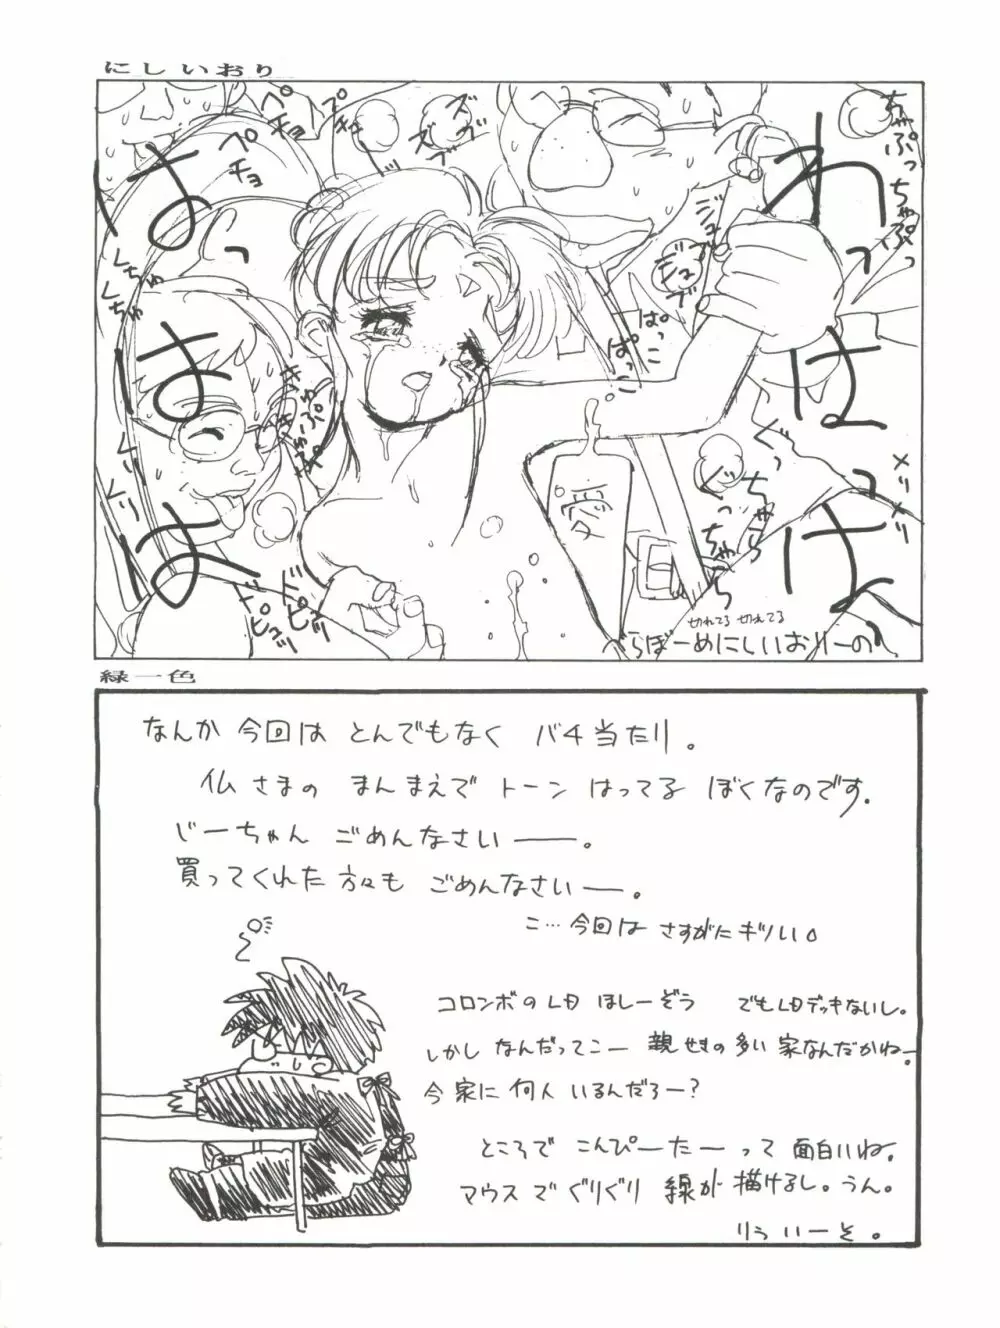 にしいおり
ペチョ
ペチョ
プチョッ
ズブ
ズブ
ちゃぷっちゃぷっ
わっはっはは
はっはは
ジュブ
ジュブ
くちゅ
くちゅ
ぱっこ
ぱっこ
きゅぷっ
愛
ぐっちゃら
ぐっちゃら
メリメリ
ドピュッ
ドピュッ
切れてる 切れてる
べらぼーめにしいおりーの
緑一色
なんか 今回は とんでもなく バチ当たり。
仏さまの まんまえで トーン はってる ぼくなのです。
じーちゃん ごめんなさいー。
買ってくれた 方々も ごめんなさいー。
こ…今回は さすがに ギリしい。
コロンボの LD ほしーぞう でも LDデッキないし。
しかし なんだってこー 親せきの 多い 家なんだかねー
今家に 何人 いるんだろー?
ところで こんぴーたーって 面白いね。
マウスで ぐりぐり 線が 描けるし。うん。
りゅういーそ。